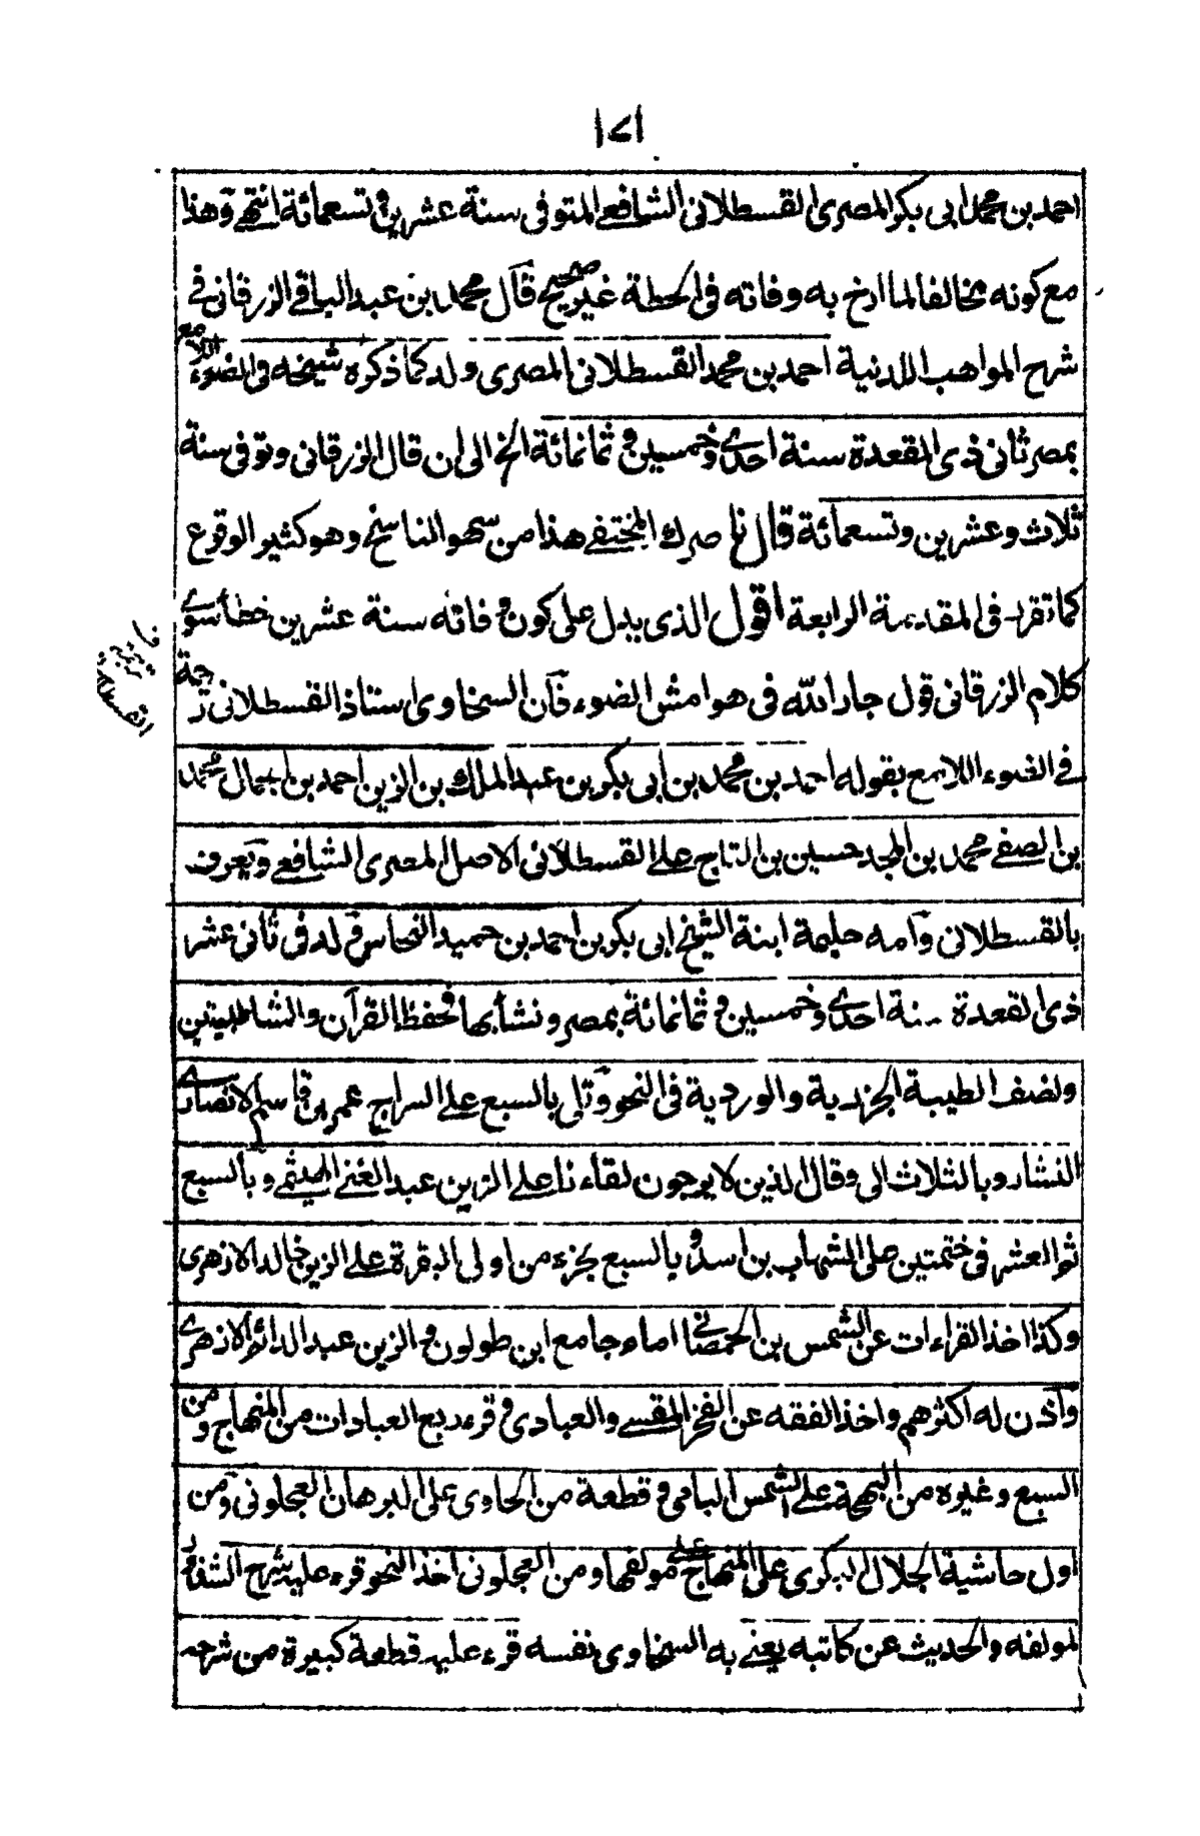 ١٧١
احمد بن محمد ابى بكر المصرى القسطلانى الشافعے المتوفى سنة عشرين و تسعمائة انتهے وهذا
مع كونه مخالفا لما ارخ به وفاته فى الحطة غير صحيح قال محمد بن عبد الباقے الزرقانى فے
شرح المواهب اللدنية احمد بن محمد القسطلانى المصرى ولد كما ذكره شيخه فى الضوء اللامع
بمصر ثانى ذى القعدة سنة احدے وخمسين و ثمانمائة الخ الى ان قال الزرقانى وتوفى سنة
ثلاث وعشرين وتسعمائة قال ناصرك المختفے هذا من سهو الناسخ وهو كثير الوقوع
كما تقرر فى المقدمة الرابعة اقول الذى يدل على كون وفاته سنة عشرين خطأ سوے
كلام الزرقانى قول جار الله فى هوامش الضوء فان السخاوى استاذ القسطلانى ترجمة
القسطلانے
فے الضوء اللامع بقوله احمد بن محمد بن ابى بكر بن عبد الملك بن الزين احمد بن الجمال محمد
بن الصفے محمد بن المجد حسين بن التاج علے القسطلانى الاصل المصرى الشافعے ويعرف
بالقسطلانى وامه حليمة ابنة الشيخ ابى بكر بن احمد بن حميد النحاس ولد فى ثانى عشر
ذى القعدة سنة احدے وخمسين و ثمانمائة بمصر ونشأ بها فحفظ القرآن والشاطبيتين
ونصف الطيبة الجزرية والوردية فى النحو وتلى بالسبع علے السراج عمر بن قاسم الانصارے
النشار وبالثلاث الى وقال الذين لا يرجون لقاءنا علے الزين عبد الغنے الهيثمے وبالسبع
ثم العشر فى ختمتين على الشهاب بن اسد وبالسبع بجزء من اولى البقرة علے الزين خالد الازهرى
وكذا اخذ القراءات عن الشمس بن الحمصانى امام جامع ابن طولون والزين عبد الدائم الازهرے
واذن له اكثرهم واخذ الفقه عن الفخر المقسے والعبادى و قرء ربع العبادات من المنهاج ومن
السبع وغيره من البهجة علے الشمس البامى و قطعة من الحاوى على البرهان العجلونى ومن
اول حاشية الجلال البكرى على المنهاج علے مولفها ومن العجلونى اخذ النحو قرء عليه شرح الشذور
لمولفه والحديث عن كاتبه يعنے به السخاوى نفسه قرء عليه قطعة كبيرة من شرحه